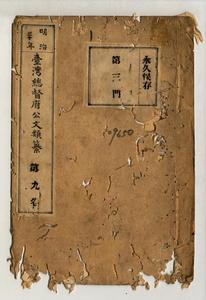 永久保存
第三門
明治
年
臺灣總督府公文類纂 第九
9650